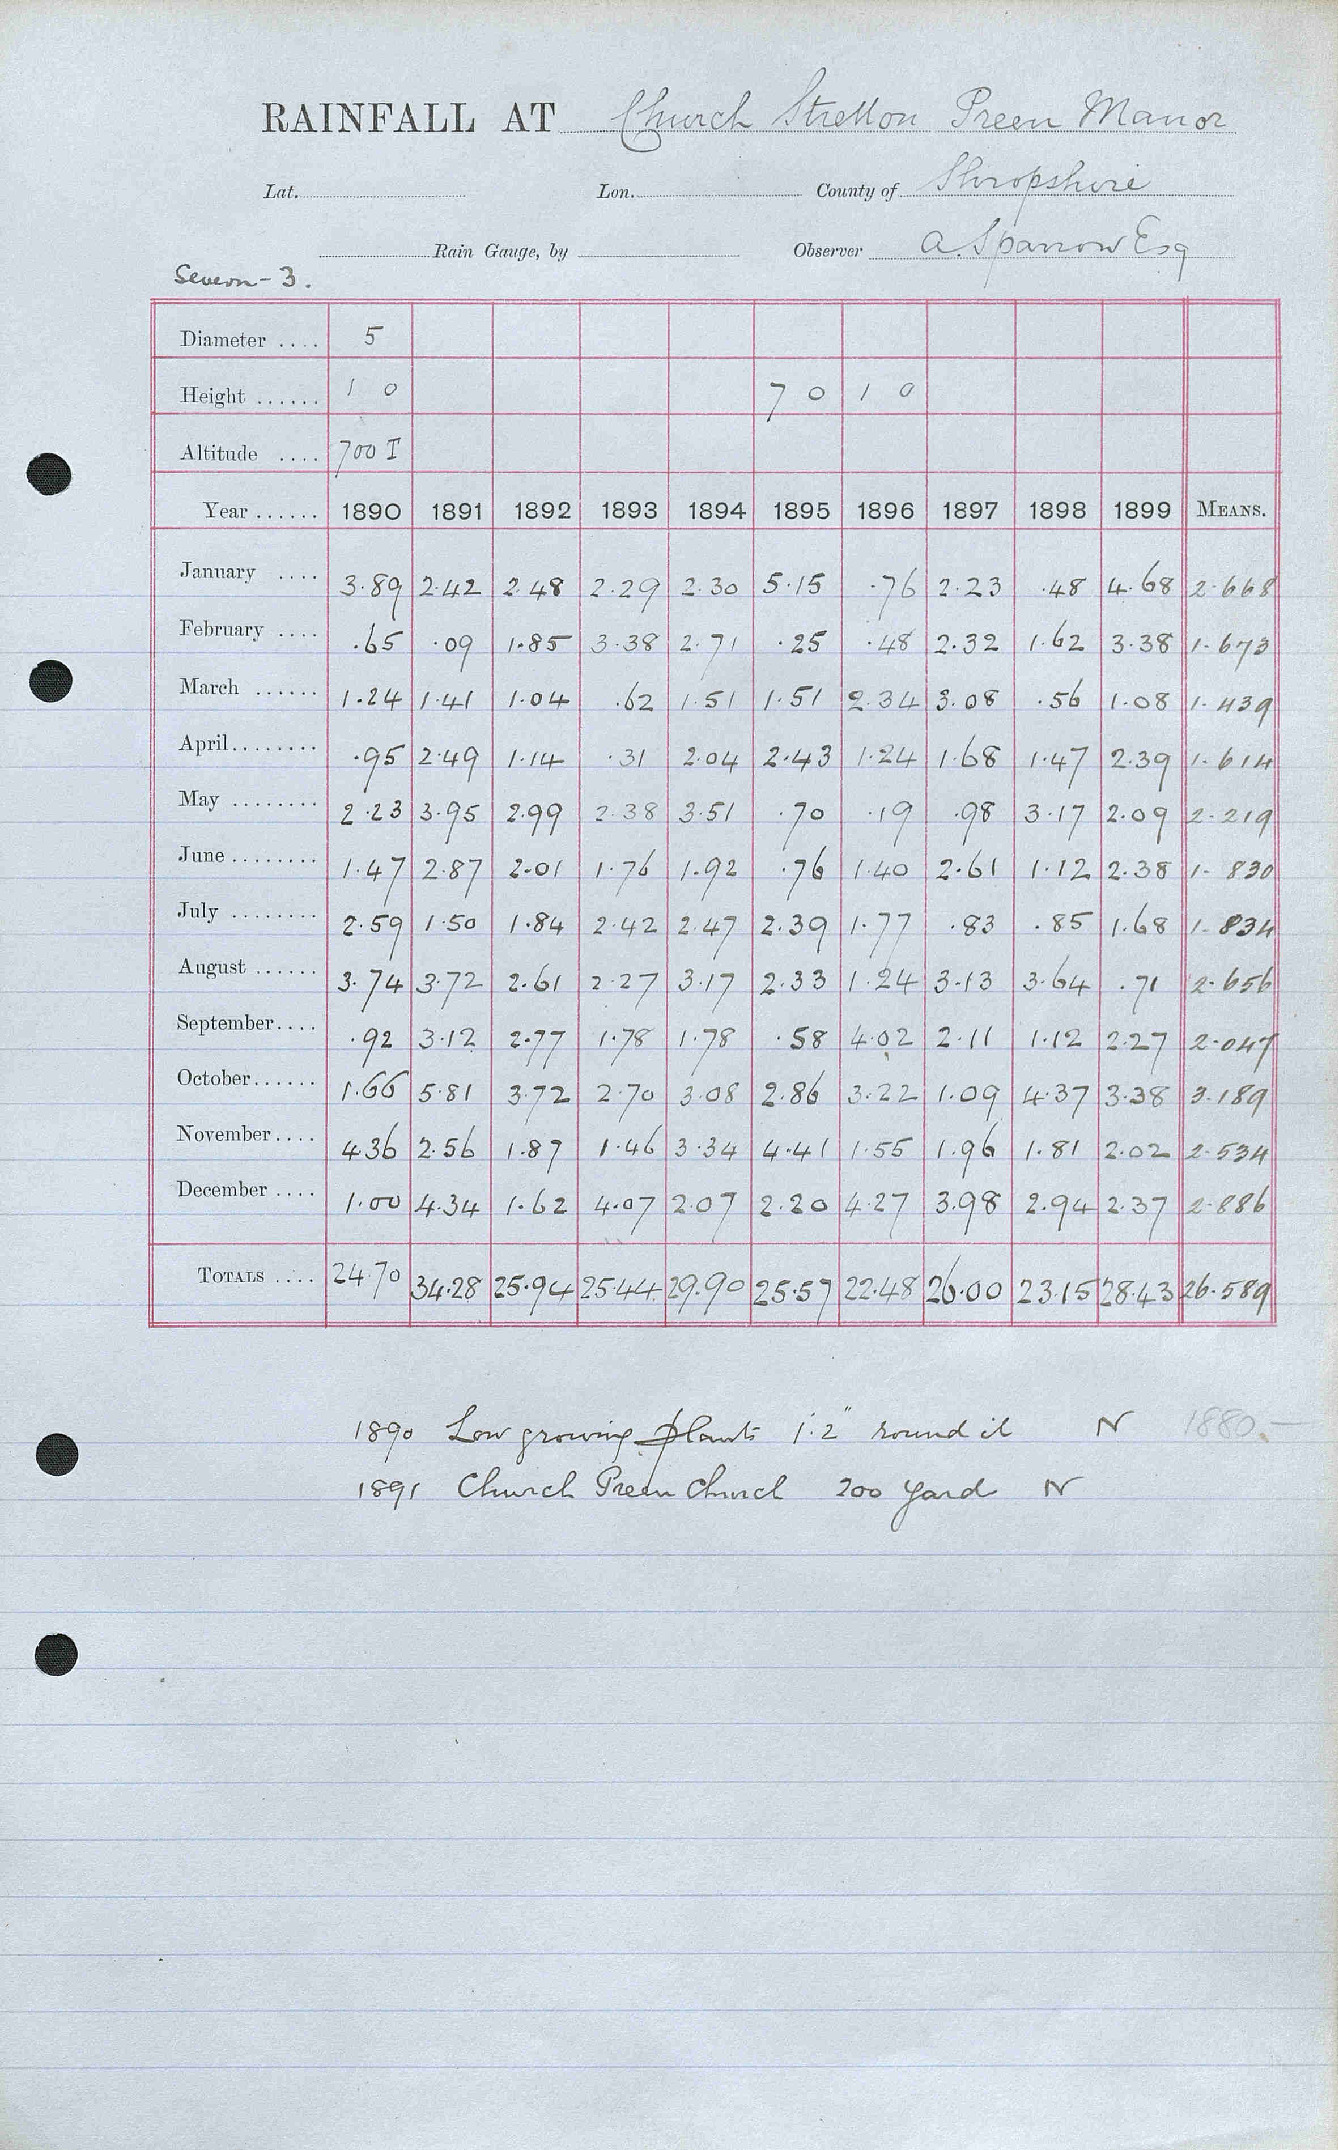 RAINFALL AT Church Stretton Preen Manor
Lat. Lon. County of Shropshire
Rain Gauge, by Observer A. Sparrow Esq
Severn - 3.
Diameter .... 5
Height ...... 1 0 7 0 1 0
Altitude .... 700 T
Year ...... 1890 1891 1892 1893 1894 1895 1896 1897 1898 1899 MEANS.
January .... 3.89 2.42 2.48 2.29 2.30 5.15 .76 2.23 .48 4.68 2.668
February .... .65 .09 1.85 3.38 2.71 .25 .48 2.32 1.62 3.38 1.673
March ...... 1.24 1.41 1.04 .62 1.51 1.51 2.34 3.08 .56 1.08 1.439
April........ .95 2.49 1.14 .31 2.04 2.43 1.24 1.68 1.47 2.39 1.614
May ........ 2.23 3.95 2.99 2.38 3.51 .70 .19 .98 3.17 2.09 2.219
June ........ 1.47 2.87 2.01 1.76 1.92 .76 1.40 2.61 1.12 2.38 1.830
July ........ 2.59 1.50 1.84 2.42 2.47 2.39 1.77 .83 .85 1.68 1.834
August ...... 3.74 3.72 2.61 2.27 3.17 2.33 1.24 3.13 3.64 .71 2.656
September.... .92 3.12 2.77 1.78 1.78 .58 4.02 2.11 1.12 2.27 2.047
October...... 1.66 5.81 3.72 2.70 3.08 2.86 3.22 1.09 4.37 3.38 3.189
November.... 4.36 2.56 1.87 1.46 3.34 4.41 1.55 1.96 1.81 2.02 2.534
December .... 1.00 4.34 1.62 4.07 2.07 2.20 4.27 3.98 2.94 2.37 2.886
TOTALS .... 24.70 34.28 25.94 25.44 29.90 25.57 22.48 26.00 23.15 28.43 26.589
1890 Low growing plants 1' 2" round it N 1880.—
1891 Church Preen Church 200 Yard N